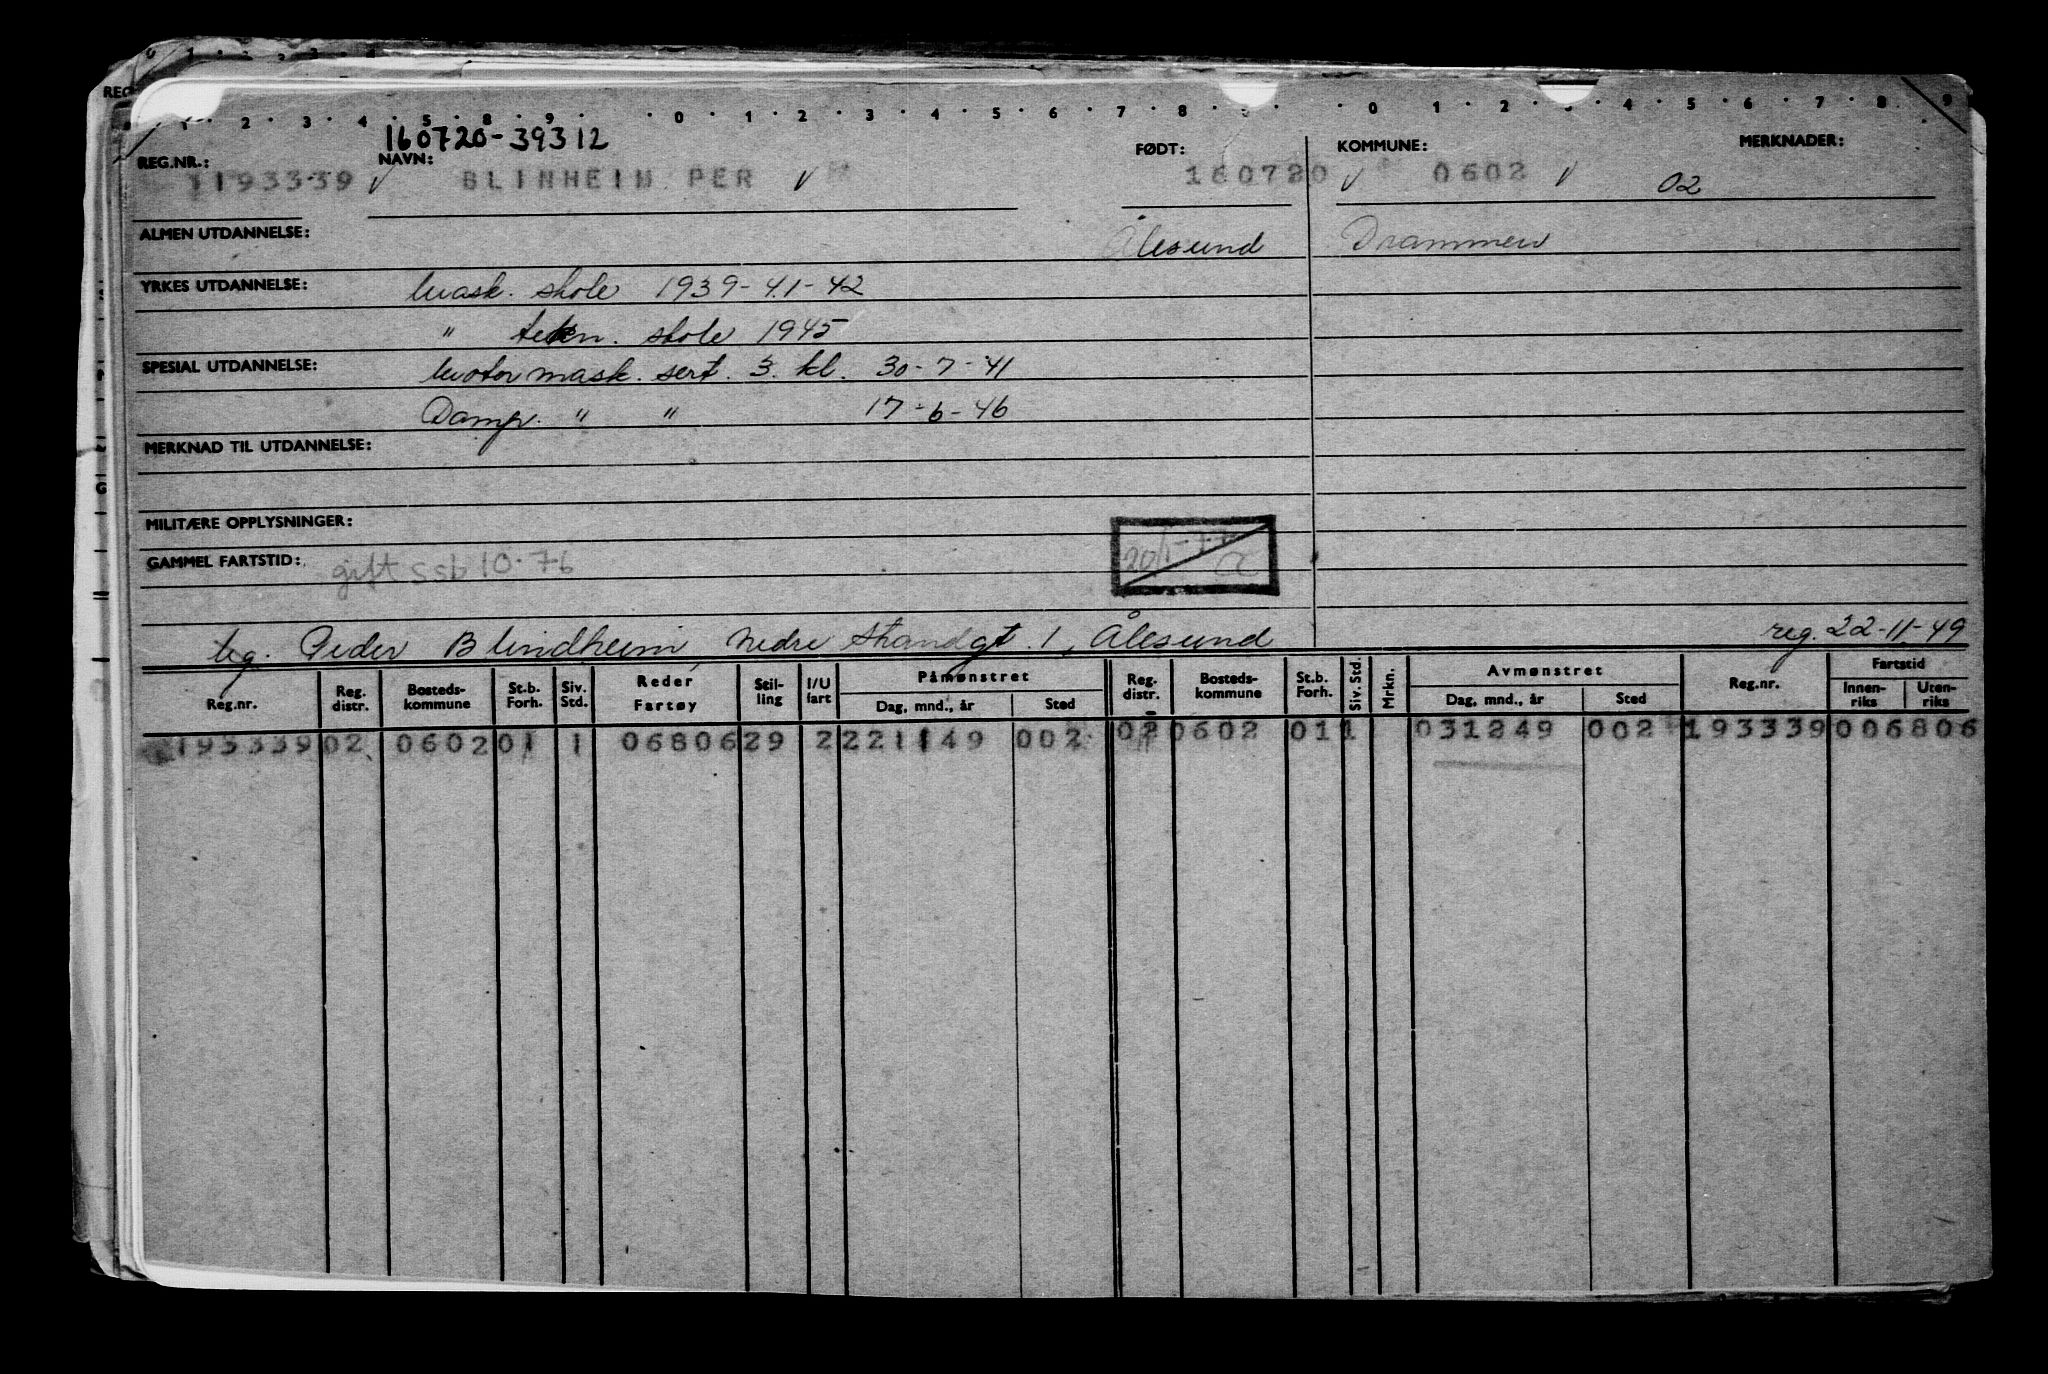 160720-39312
REG.NR.: NAVN: FØDT: KOMMUNE: MERKNADER:
1193339 V BLINHEIM PER V 160720 V 0602 V 02
ALMEN UTDANNELSE: Ålesund Drammen
YRKES UTDANNELSE: Mask. skole 1939-41-42
" tekn. skole 1945
SPESIAL UTDANNELSE: Motormask. sert. 3. kl. 30-7-41
Damp. " " 17-6-46
MERKNAD TIL UTDANNELSE:
MILITÆRE OPPLYSNINGER:
GAMMEL FARTSTID: gift ssb 10.76
leg. Peder Blindheim, Nedre Strandgt. 1, Ålesund reg. 22-11-49
Reg.nr. Reg. distr. Bosteds-kommune St.b. Forh. Siv. Std. Reder Fartøy Stil-ling I/U fart Påmønstret Dag, mnd., år Sted Reg. distr. Bosteds-kommune St.b. Forh. Siv. Std. Mrkn. Avmønstret Dag, mnd., år Sted Reg.nr. Fartstid Innen-riks Uten-riks
193339 02 0602 01 1 06806 29 2 221149 002 02 0602 01 1 031249 002 193339 006806